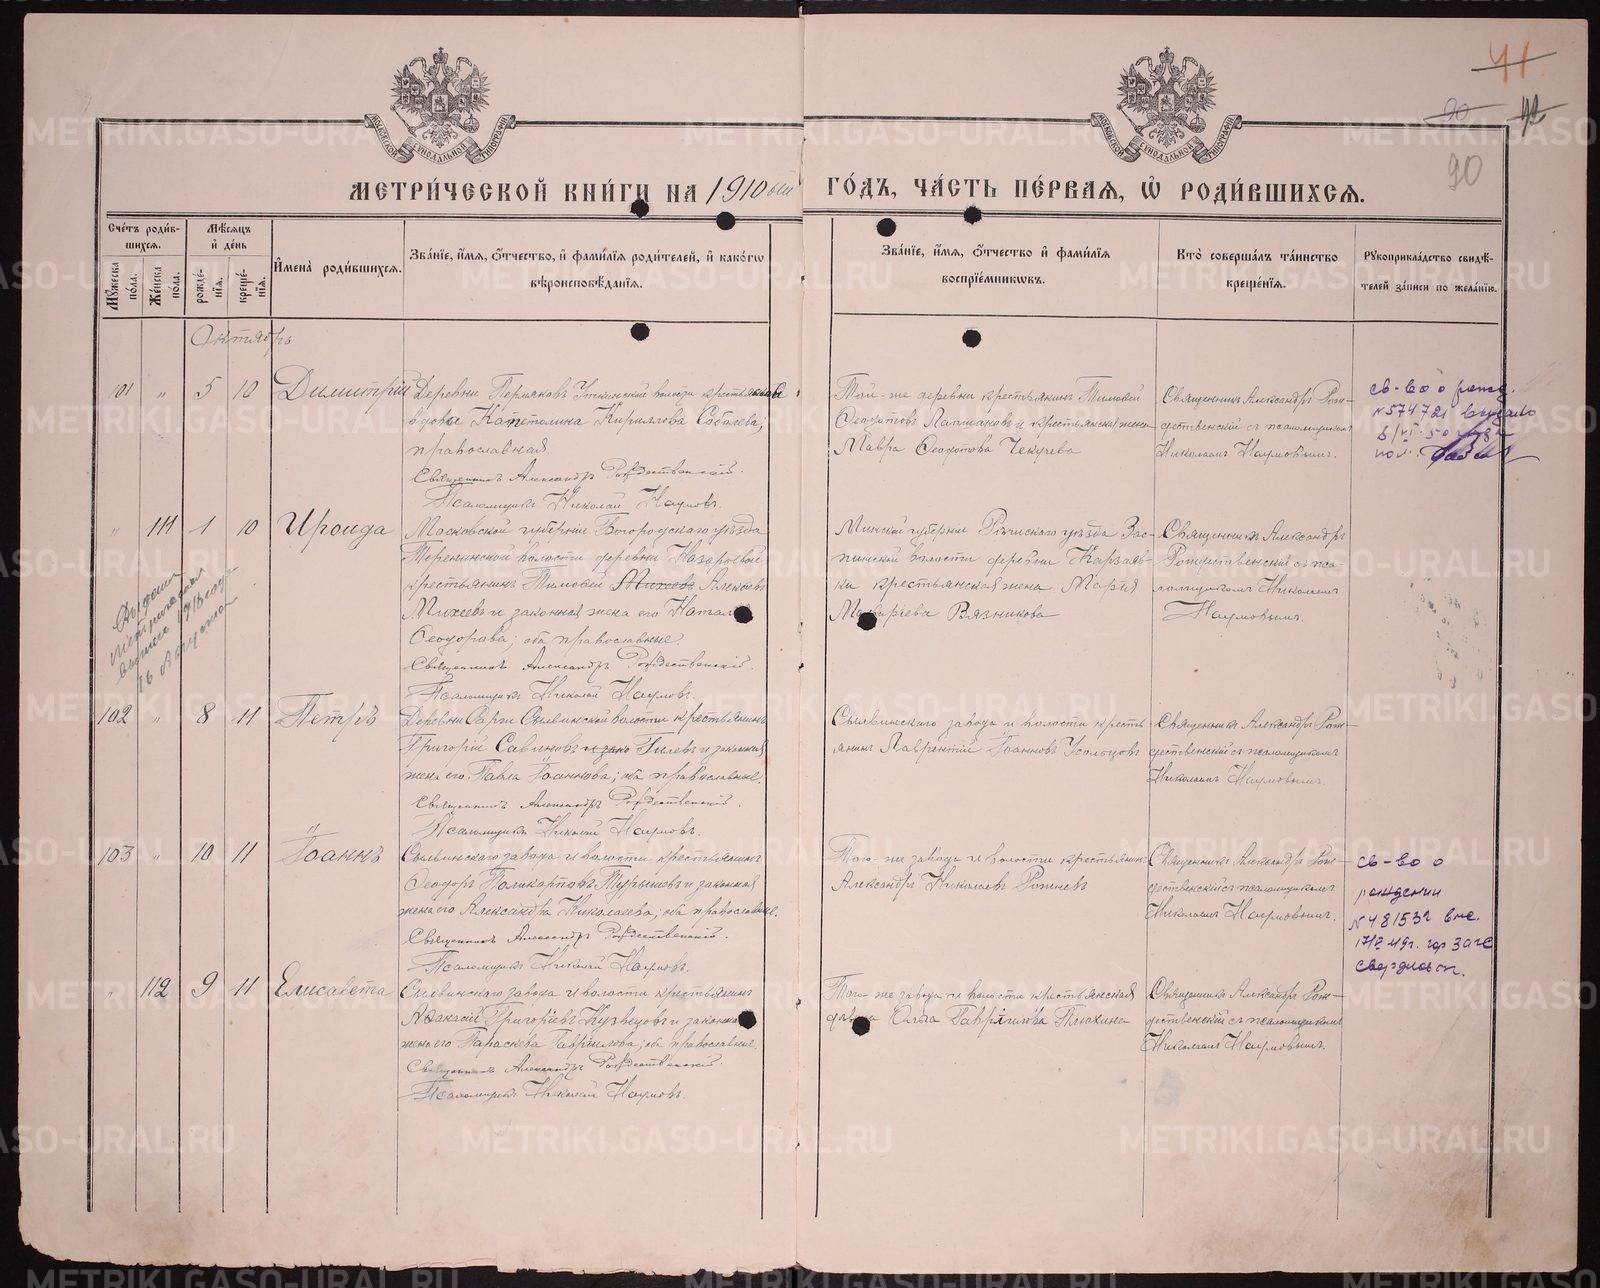 41.
90
42
90
МОСКОВСКОЙ СѴНОДАЛЬНОЙ ТИПОГРАФІИ
МОСКОВСКОЙ СѴНОДАЛЬНОЙ ТИПОГРАФІИ
МЕТРИ́ЧЕСКОЙ КНИ́ГИ НА 1910ый ГО́ДЪ, ЧА́СТЬ ПЕ́РВАЯ, Ѽ РОДИ́ВШИХСЯ.
Сче́тъ роди́вшихся.
Мѣ́сяцъ и де́нь
Му́жеска по́ла.
Же́нска по́ла.
рожде́нїя.
креще́нїя.
Имена̀ роди́вшихся.
Зва́нїе, и́мя, о́тчество, и фами́лїя роди́телей, и како́гѡ вѣроисповѣ́данїя.
Зва́нїе, и́мя, о́тчество и фами́лїя воспрїе́мникѡвъ.
Кто̀ соверша́лъ та́инство креще́нїя.
Рукоприкла́дство свидѣ́телей за́писи по жела́нїю.
Октябрь
101 " 5 10 Димитрій
Деревни Пермяковъ Уткинской волости крестьянская
вдова Капетолина Кириллова Соболева;
православная.
Священникъ Александръ Рождественскій.
Псаломщикъ Николай Наумовъ.
Той-же деревни крестьянинъ Тимофей
Феодотовъ и крестьянская жена
Мавра Феодотова Чекучева
Священникъ Александръ Рож-
дественскій съ псаломщикомъ
Николаемъ Наумовымъ.
св-во о рожд.
N 574721
" 111 1 10 Ироида
Московской губерніи Богородскаго уѣзда
Теренинской волости деревни Назаровой
крестьянинъ Тимофей Михеевъ Алексѣевъ
Михеевъ и законная жена его Наталья
Феодорова; оба православные.
Священникъ Александръ Рождественскій.
Псаломщикъ Николай Наумовъ.
Минской губерніи Рѣчицкаго уѣзда
волости деревни
крестьянская жена Марія
Макаріева Вязникова
Священникъ Александръ
Рождественскій съ пса-
ломщикомъ Николаемъ
Наумовымъ.
Выдана
метрическая
выпись 1916 года
16 Августа
102 " 8 11 Петръ
Деревни Сарги Сылвинской волости крестьянинъ
Григорій Савиновъ и зако Гилевъ и законная
жена его Павла Іоаннова; оба православные.
Священникъ Александръ Рождественскій.
Псаломщикъ Николай Наумовъ.
Сылвинскаго завода и волости кресть
янинъ Лаврентій Іоанновъ Усольцовъ
Священникъ Александръ Рож-
дественскій съ псаломщикомъ
Николаемъ Наумовымъ.
103 " 10 11 Іоаннъ
Сылвинскаго завода и волости крестьянинъ
Феодоръ Поликарповъ Турышовъ и законная
жена его Александра Николаева; оба православные.
Священникъ Александръ Рождественскій.
Псаломщикъ Николай Наумовъ.
Того-же завода и волости крестьянинъ
Александръ Николаевъ Рожневъ
Священникъ Александръ Рож-
дественскій съ псаломщикомъ
Николаемъ Наумовымъ.
св-во о
рождении
N 481532
49г. гор загс
Свердловск.
" 112 9 11 Елисавета
Сылвинскаго завода и волости крестьянинъ
Афанасій Григоріевъ Кузнецовъ и законная
жена его Параскева Гавріилова; оба православные.
Священникъ Александръ Рождественскій.
Псаломщикъ Николай Наумовъ.
Того-же завода и волости крестьянская
дѣвица Ольга Гавріилова Плюхина
Священникъ Александръ Рож-
дественскій съ псаломщикомъ
Николаемъ Наумовымъ.
METRIKI.GASO-URAL.RU